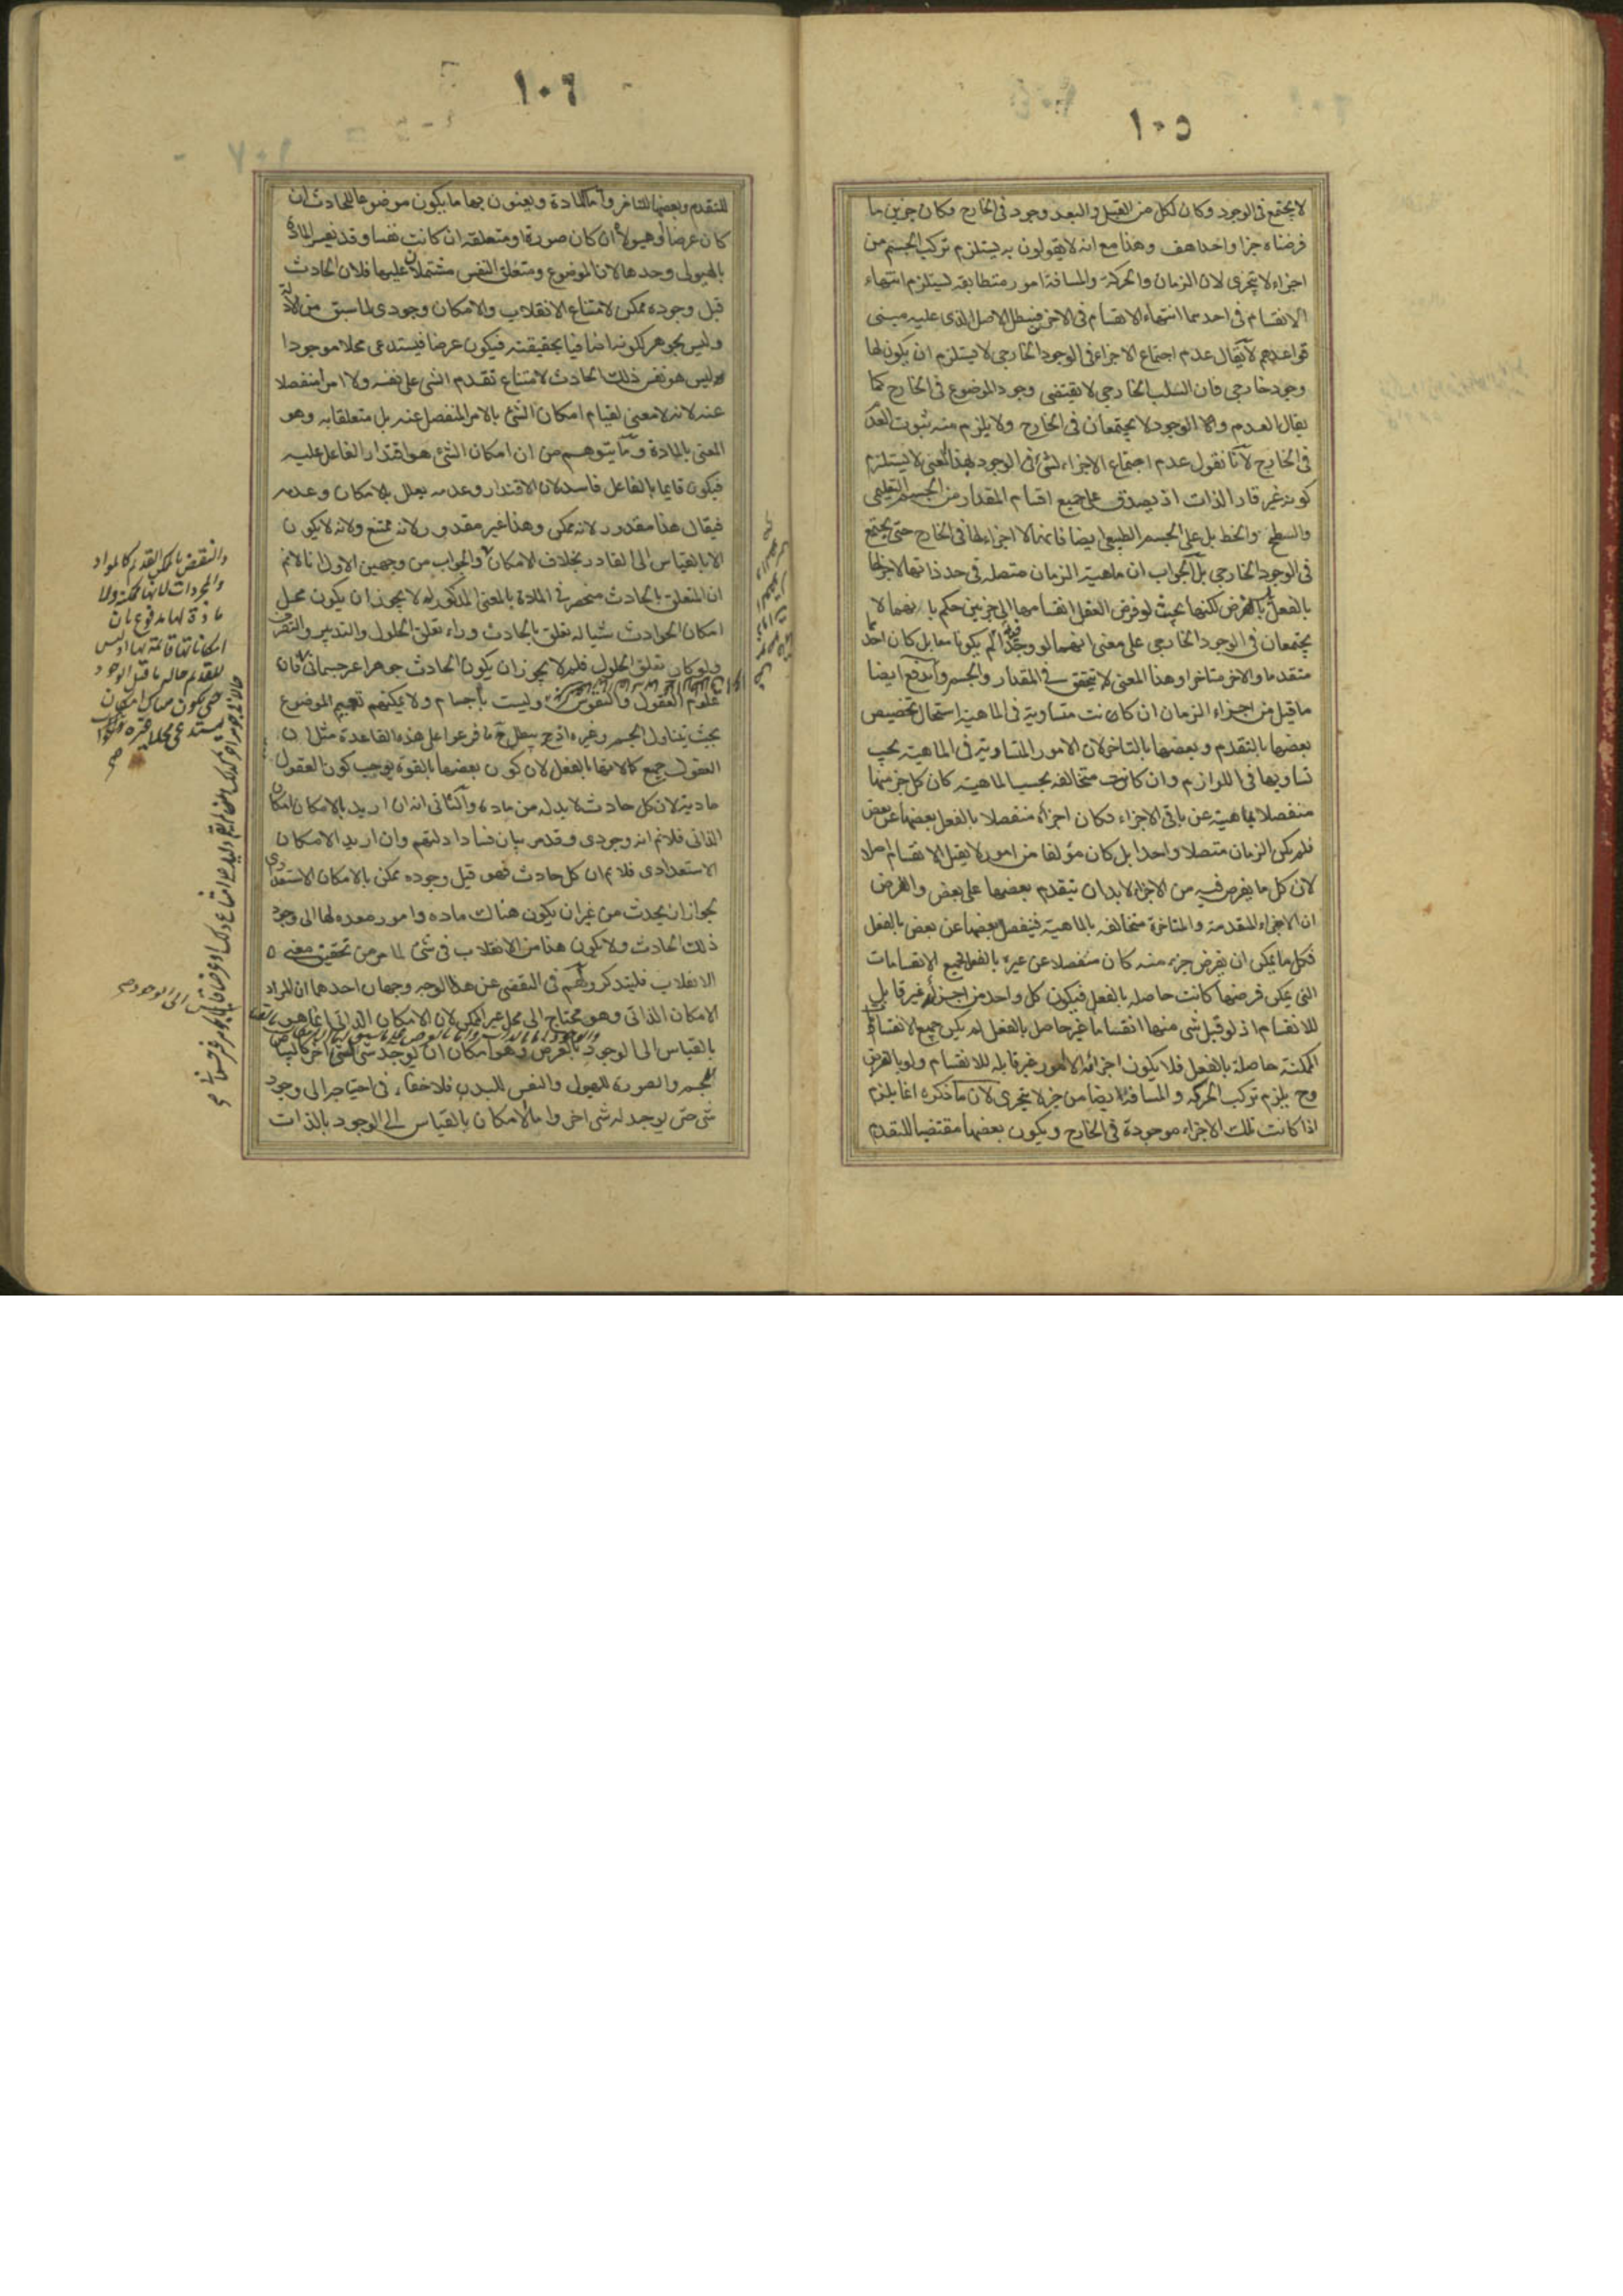 ١٠٥
لا يجتمع فى الوجود وكان لكل من القبل والبعد وجود فى الخارج وكان جزين ما
فرضناه جزا واحدا هف وهذا مع انه لا يقولون به يستلزم تركب الجسم من
اجزاء لا يتجزى لان الزمان والحركة والمسافة امور متطابقه يستلزم انتهاء
الانقسام فى احدهما انتهاء الانقسام فى الاخر فيبطل الاصل الذى عليه مبنى
قواعدهم لا يقال عدم اجتماع الاجزاء فى الوجود الخارجى لا يستلزم ان يكون لها
وجود خارجى فان السلب الخارجى لا يقتضى وجود الموضوع فى الخارج كما
يقال العدم والا الوجود لا يجتمعان فى الخارج ولا يلزم منه ثبوت العدم
فى الخارج لانا نقول عدم اجتماع الاجزاء لشئ فى الوجود بهذا المعنى لا يستلزم
كونه غير قار الذات اذ يصدق على جميع اقسام المقدار من الجسم التعليمى
والسطح والخط بل على الجسم الطبيعى ايضا فانه لا اجزاء لها فى الخارج حتى يجتمع
فى الوجود الخارجى بل الجواب ان ماهية الزمان متصله فى حد ذاتها لا جزء لها
بالفعل بالفرض لكنها بحيث لو فرض العقل انقسامها الى جزين حكم بانهما لا
يجتمعان فى الوجود الخارجى على معنى انهما لو وجدا لم يكونا معا بل كان احدهما
متقدما والاخر متاخرا وهذا المعنى لا يتحقق فى المقدار والجسم واندفع ايضا
ما قيل من اجزاء الزمان ان كانت متساوية فى الماهية استحال تخصيص
بعضها بالتقدم وبعضها بالتاخر لان الامور المتساوية فى الماهية يجب
تساويها فى اللوازم وان كانت متخالفه بحسب الماهية كان كل جزء منها
منفصلا بماهيته عن باقى الاجزاء فكان اجزاؤه منفصلا بالفعل بعضها عن بعض
فلم يكن الزمان متصلا واحدا بل كان مؤلفا من امور لا يقبل الانقسام اصلا
لان كل ما يفرض فيه من الاجزاء لابد ان يتقدم بعضها على بعض والفرض
ان الاجزاء المتقدمة والمتاخرة متخالفه بالماهية فينفصل بعضها عن بعض بالفعل
فكل ما يمكن ان يفرض جزء منه كان منفصلا عن غيره بالفعل فجميع الانقسامات
التى يمكن فرضها كانت حاصله بالفعل فيكون كل واحد من اجزائه غير قابل
للانقسام اذ لو قبل شى منها انقساما غير حاصل بالفعل لم يكن جميع الانقسامات
الممكنة حاصلة بالفعل فلا يكون اجزائه الا امور غير قابله للانقسام ولو بالفرض
وح يلزم تركب الحركه والمسافة ايضا من جزء لا يتجزى لان ما ذكره انما يلزم
اذا كانت تلك الاجزاء موجودة فى الخارج ويكون بعضها مقتضيا للتقدم
١٠٦
للتقدم وبعضها للتاخر واما المادة ويعنون بها ما يكون موضوعا للحادث ان
كان عرضا او هيولاه ان كان صورة او متعلقه ان كانت نفسا وقد تفسر المادة
بالهيولى وحدها لان الموضوع ومتعلق النفس مشتملان عليها فلان الحادث
قبل وجوده ممكن لامتناع الانقلاب والامكان وجودى لما سبق من الادلة
وليس بجوهر لكونه اضافيا بحقيقته فيكون عرضا فيستدعى محلا موجودا
وليس هو نفس ذلك الحادث لامتناع تقدم الشى على نفسه ولا امرا منفصلا
عنه لانه لا معنى لقيام امكان الشئ بالامر المنفصل عنه بل متعلقا به وهو
المعنى بالمادة وما يتوهم من ان امكان الشئ هو اقتدار الفاعل عليه
فيكون قايما بالفاعل فاسد لان الاقتدار وعدمه يعلل بالامكان وعدمه
فيقال هذا مقدور لانه ممكن وهذا غير مقدور لانه ممتنع ولانه لا يكون
الا بالقياس الى القادر بخلاف الامكان والجواب من وجهين الاول انا لا نم
ان المتعلق بالحادث منحصر فى المادة بالمعنى المذكور لم لا يجوز ان يكون محل
امكان الحوادث شيا له تعلق بالحادث وراء تعلق الحلول والتدبير والتصرف
ولو كان تعلق الحلول فلم لا يجوز ان يكون الحادث جوهرا غير جسمانى فان
علوم العقول والنفوس وليست باجسام ولا يمكنهم تعميم الموضوع
بحيث يتناول الجسم وغيره اذ ح يبطل ما فرعوا على هذه القاعدة مثل ان
العقول جميع كمالاتها بالفعل لان كون بعضها بالقوة يوجب كون العقول
مادية لان كل حادث لابد له من مادة والثانى انه ان اريد بالامكان امكان
الذاتى فلا نم انه وجودى وقد مر بيان فساد ادلتهم وان اريد الامكان
الاستعدادى فلا نم ان كل حادث فهو قبل وجوده ممكن بالامكان الاستعدادى
لجواز ان يحدث من غير ان يكون هناك ماده وامور معده لها الى وجود
ذلك الحادث ولا يكون هذا من الانقلاب فى شئ لما مر من تحقيق معنى
الانقلاب فليتذكر ولهم فى التفصى عن هذا الوجه وجهان احدهما ان المراد
الامكان الذاتى وهو محتاج الى محل غير الممكن لان الامكان الذاتى انما هو بالقياس
بالقياس الى الوجود بالعرض وهو امكان ان يوجد شى لشئ اخر كالبياض
للجسم والصورة للهيولى والنفس للبدن فلا خفاء فى احتياجه الى وجود
شى حتى يوجد له شى اخر واما الامكان بالقياس الى الوجود بالذات
والنقض بالممكن القديم كالمواد
والمجردات لانها ممكنة ولا
مادة لها مدفوع بان
امكاناتها قائمة بها اذ ليس
للقديم حالة ما قبل الوجود
حتى يكون هناك امكان
يستدعى محلا غيره
صح
الى الوجود صح